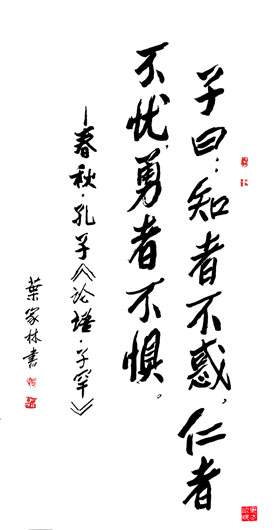 子曰：知者不惑，仁者
不忧，勇者不惧。
—春秋·孔子《论语·子罕》
葉家林書